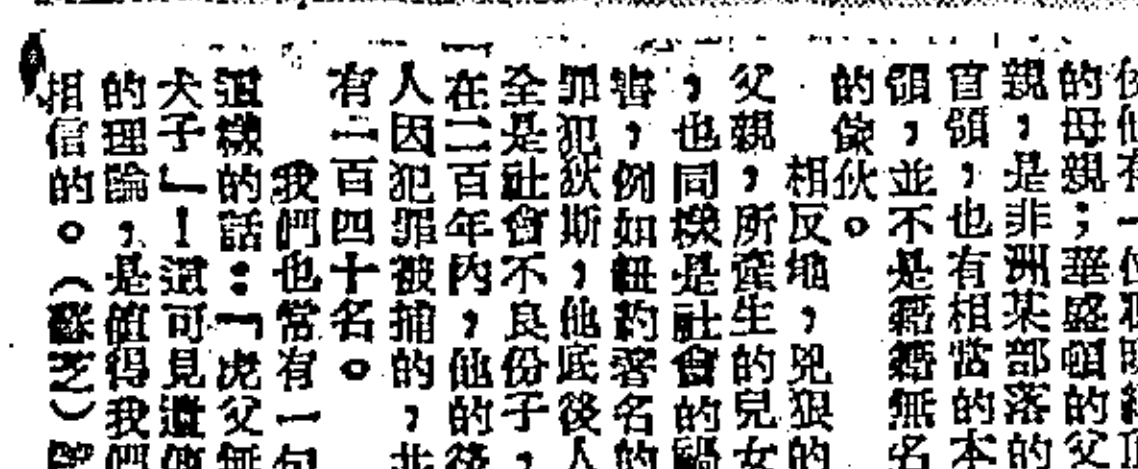 的母親；華盛頓的父
親，是非洲某部落的
酋領，也有相當的本
領，並不是藉藉無名
的傢伙。
相反地，兇狠的
父親，所產生的兒女
，也同樣是社會的禍
害，例如紐約著名的
罪犯狄斯，他底後人
全是社會不良份子，
在二百年內，他的後
人因犯罪被捕的，
有二百四十名。
我們也常有一句
這樣的話：「虎父無
犬子」！這可見遺傳
的理論，是值得我們
相信的。（蘇芝）